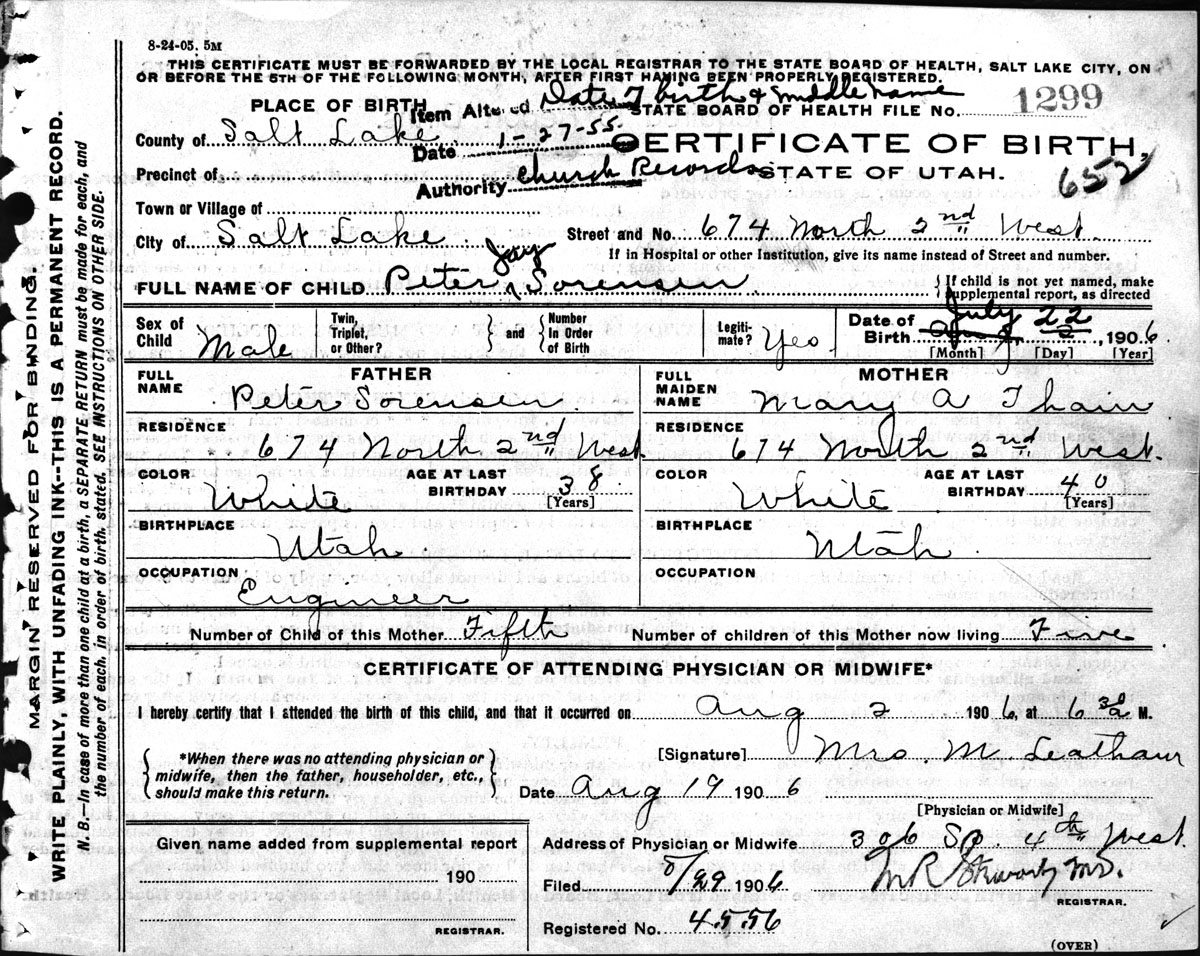 8-24-05. 5M
THIS CERTIFICATE MUST BE FORWARDED BY THE LOCAL REGISTRAR TO THE STATE BOARD OF HEALTH, SALT LAKE CITY, ON
OR BEFORE THE 5TH OF THE FOLLOWING MONTH, AFTER FIRST HAVING BEEN PROPERLY REGISTERED.
PLACE OF BIRTH Item Altered Date of birth & middle name
STATE BOARD OF HEALTH FILE NO. 1299
County of Salt Lake Date 1-27-55. CERTIFICATE OF BIRTH,
Precinct of Authority Church Records STATE OF UTAH. 652
Town or Village of
City of Salt Lake Street and No. 674 North 2nd West
If in Hospital or other Institution, give its name instead of Street and number.
FULL NAME OF CHILD Peter Jay Sorensen {If child is not yet named, make supplemental report, as directed
Sex of Child Male Twin, Triplet, or Other? } and { Number In Order of Birth Legiti-mate? Yes Date of Birth July 22 Aug 2, 1906
[Month] [Day] [Year]
FATHER MOTHER
FULL NAME Peter Sorensen. FULL MAIDEN NAME Mary A Thain
RESIDENCE RESIDENCE
674 North 2nd West 674 North 2nd West.
COLOR White AGE AT LAST BIRTHDAY 38 [Years] COLOR White AGE AT LAST BIRTHDAY 40 [Years]
BIRTHPLACE Utah BIRTHPLACE Utah
OCCUPATION Engineer OCCUPATION
Number of Child of this Mother Fifth Number of children of this Mother now living Five
CERTIFICATE OF ATTENDING PHYSICIAN OR MIDWIFE*
I hereby certify that I attended the birth of this child, and that it occurred on Aug 2 1906, at 6 30 a M.
{*When there was no attending physician or midwife, then the father, householder, etc., should make this return.}
[Signature] Mrs. M. Leatham
Date Aug 19 1906
[Physician or Midwife]
Given name added from supplemental report
190
REGISTRAR.
Address of Physician or Midwife 306 So. 4th West
Filed 8/29 1906 M R Stewart M.D.
REGISTRAR.
Registered No. 4556
(OVER)
MARGIN RESERVED FOR BINDING.
WRITE PLAINLY, WITH UNFADING INK--THIS IS A PERMANENT RECORD.
N.B.--In case of more than one child at a birth, a SEPARATE RETURN must be made for each, and
the number of each, in order of birth, stated. SEE INSTRUCTIONS ON OTHER SIDE.